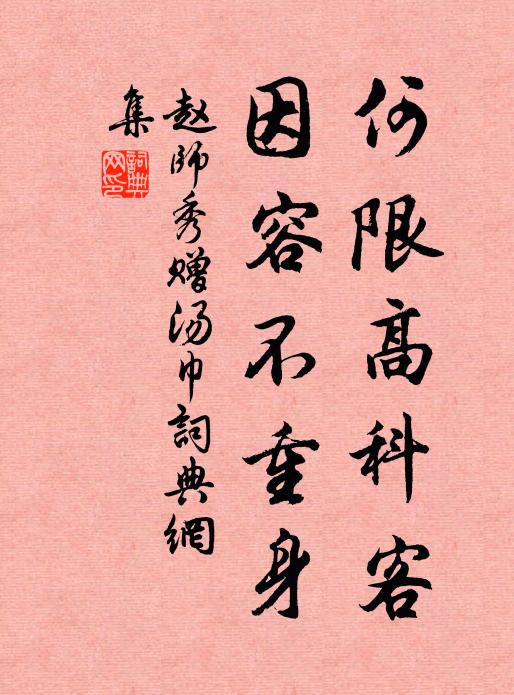 何限高科客
因容不重身
赵師秀赠汤巾詞典網
集
詞典網印